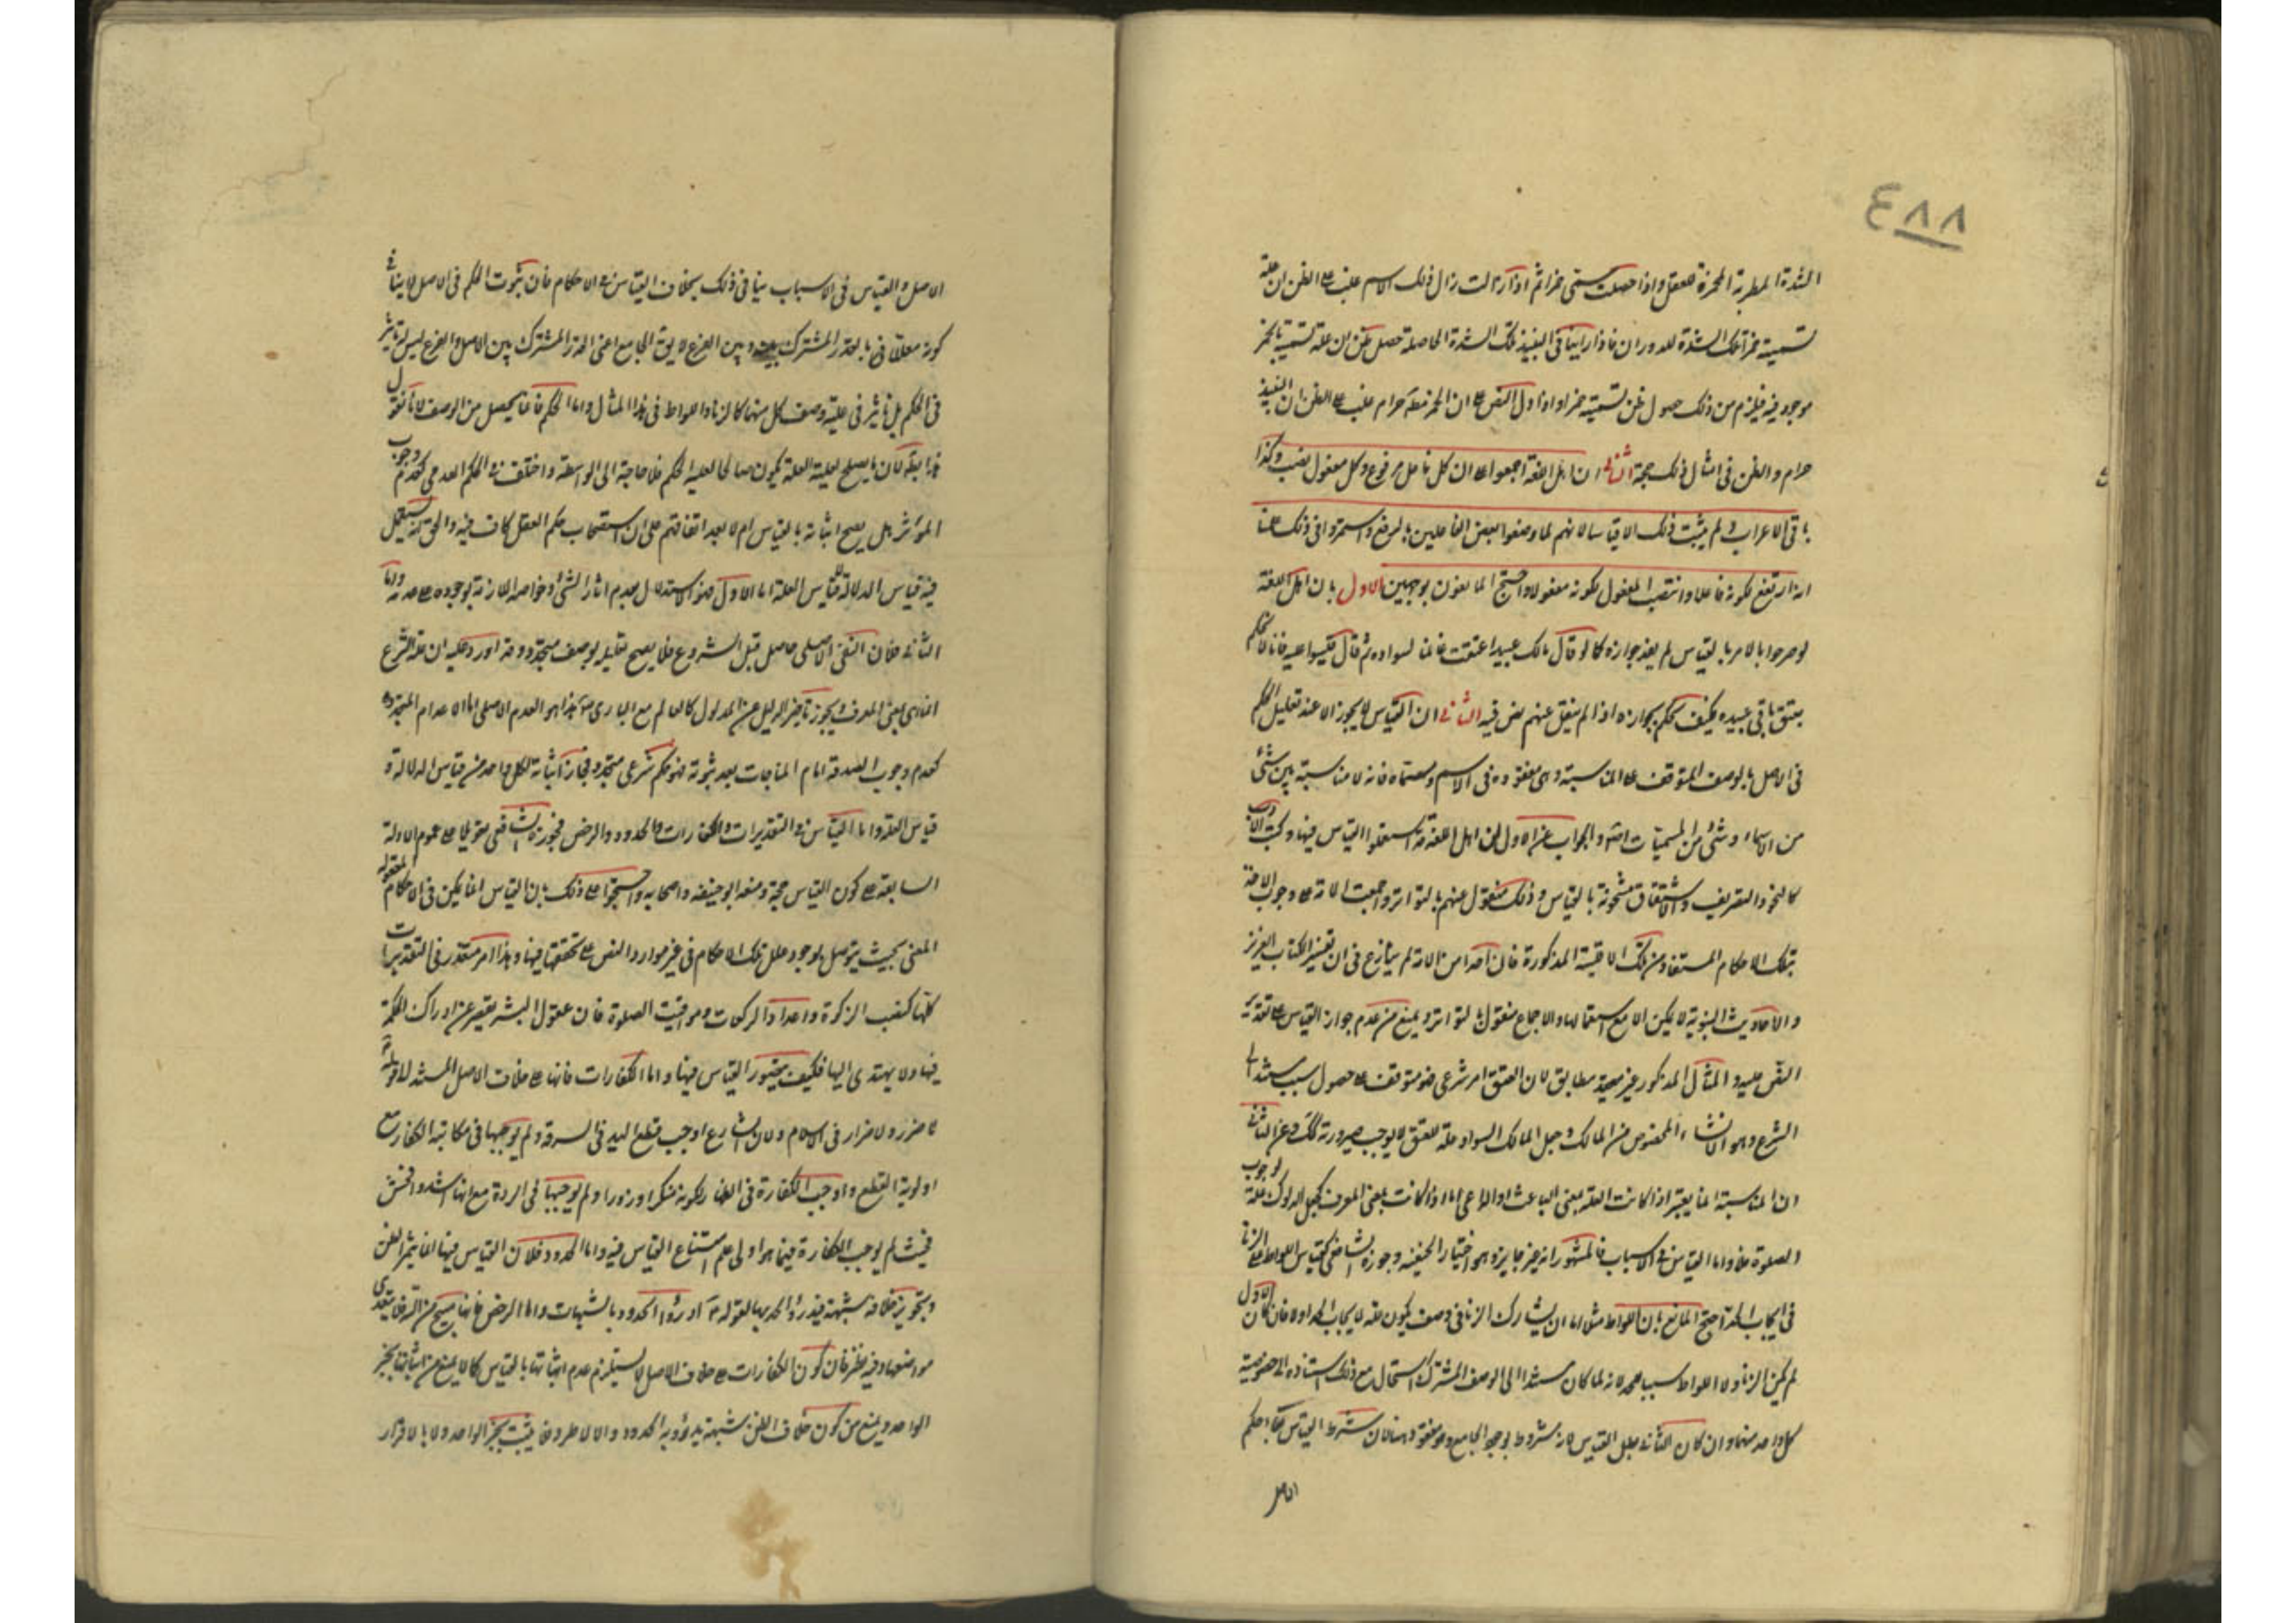 ٤٨٨
الشدة المطربة المخمرة للعقل واذا حصلت سمى خمرا ثم اذا زالت زال ذلك الاسم غلب على الظن ان علة
تسميته خمرا تلك الشدة للدوران فاذا راينا فى النبيذ تلك الشدة الحاصلة حصل ظن ان علة تسميته بالخمر
موجود فيه فيلزم من ذلك حصول ظن تسميته خمرا واذا دل النص على ان الخمر مطلقا حرام غلب على الظن ان النبيذ
حرام والظن فى امثال ذلك حجة الثانى ان اهل اللغة اجمعوا على ان كل فاعل مرفوع وكل مفعول نصب وكذا
باقى الاعراب ولم يثبت ذلك الا قياسا لانهم لما وصفوا بعض الفاعلين بالرفع واستمروا فى ذلك علمنا
انه ارتفع لكونه فاعلا وانتصب المفعول لكونه مفعولا واحتج المانعون بوجهين الاول بان اهل اللغة
لو صرحوا بالامر بالقياس لم يفد جوازه كما لو قال مالك عبيد اعتقت غانما لسواده ثم قال قيسوا عليه فانا لا نحكم
بعتق باقى عبيده فكيف نحكم بجوازه اذا لم ينقل عنهم نص فيه الثانى ان القياس لا يجوز الا عند تعليل الحكم
فى الاصل بالوصف المتوقف على المناسبة وهى مفقودة فى الاسم ومسماه فانه لا مناسبة بين شئ
من الاسماء وشئ من المسميات والجواب عن الاول ان اهل اللغة قد استعملوا القياس فيها وكتب الادب
كالنحو والتصريف والاشتقاق مشحونة بالقياس وذلك منقول عنهم بالتواتر واجمعت الامة على وجوب الاخذ
بتلك الاحكام المستفادة من تلك الاقيسة المذكورة فان احدا من الامة لم ينازع فى ان تفسير الكتاب العزيز
والاحاديث النبوية لا يمكن الا مع استعمالها والاجماع منقول بالتواتر ويمنع من عدم جواز القياس على تقدير
النص عليه والمثال المذكور غير صحيح مطابق لان العتق امر شرعى فيتوقف على حصول سبب مستند الى
الشرع وهو الانشاء المخصوص من المالك وجعل المالك السواد علة للعتق لا يوجب صيرورته كذلك وعن الثانى
ان المناسبة انما يعتبر اذا كانت العلة بمعنى الباعث او الداعى اما اذا كانت بمعنى المعرف كجعل الدلوك علة لوجوب
الصلوة فلا واما القياس فى الاسباب فالمشهور انه غير جايز وهو اختيار الحنفية وجوزه الشافعى كقياس اللواط على الزنا
فى ايجاب الحد احتج المانع بان اللواط مثلا اما ان يشارك الزنا فى وصف يكون علة لايجاب الحد اولا فان كان الاول
لم يكن الزنا ولا اللواط سببا للحد لانه لما كان مستندا الى الوصف المشترك استحال مع ذلك استناده الى خصوصية
كل واحد منهما وان كان الثانى بطل القياس لانه مشروط بوجود الجامع وهو مفقود هنا لان شرط القياس بقاء حكم
الاصل
الاصل والقياس فى الاسباب ينافى ذلك بخلاف القياس فى الاحكام فان ثبوت الحكم فى الاصل لا ينافى
كونه معللا بالقدر المشترك بينه وبين الفرع لا يق الجامع اعنى القدر المشترك بين الاصل والفرع ليس له تاثير
فى الحكم بل تاثير فى علية وصف كل منهما كالزنا واللواط فى هذا المثال واما الحكم فانما يحصل من الوصف لانا نقول
هذا باطل لان ما يصلح لعلية العلة يكون صالحا لعلية الحكم فلا حاجة الى الواسطة واختلف فى الحكم العدمى كعدم وجوب
المؤثر هل يصح اثباته بالقياس ام لا بعد اتفاقهم على ان استصحاب حكم العقل كاف فيه والحق انه يستعمل
فيه قياس الدلالة لا قياس العلة اما الاول فهو الاستدلال بعدم اثار الشئ وخواصه اللازمة لوجوده على عدمه واما
الثانى فلان النفى الاصلى حاصل قبل الشروع فلا يصح تعليله بوصف متجدد وقد اورد عليه ان علة الشرع
انما هى بمعنى المعرف ويجوز تاخير الدليل عن المدلول كالعالم مع البارى تع هذا هو العدم الاصلى اما الاعدام المتجددة
كعدم وجوب الصدقة امام المناجات بعد ثبوته فهو حكم شرعى متجدد فجاز اثباته لكل واحد من قياس الدلالة و
قياس العلة واما القياس فى التقديرات والكفارات والحدود والرخص فجوزه الشافعى تعويلا على عموم الادلة
السابقة على كون القياس حجة ومنعه ابو حنيفة واصحابه واحتجوا على ذلك بان القياس انما يمكن فى الاحكام المعقولة
المعنى بحيث يتوصل بوجود علل تلك الاحكام فى غير موارد النص على تحققها فيها وهذا امر متعذر فى التقديرات
كلها كنصب الزكوة واعداد الركعات ومواقيت الصلوة فان عقول البشر تقصر عن ادراك الحكمة
فيها ولا يهتدى اليها فكيف يتصور القياس فيها واما الكفارات فانها على خلاف الاصل المستند لقوله
لا ضرر ولا ضرار فى الاسلام ولان الشارع اوجب قطع اليد فى السرقة ولم يوجبها فى مكاتبة الكفار مع
اولوية القطع واوجب الكفارة فى الظهار لكونه منكرا وزورا ولم يوجبها فى الردة مع انها اشد وافحش
فحيث لم يوجب الكفارة فيما هو اولى علم امتناع القياس فيه واما الحدود فلان القياس فيها انما يثمر الظن
وتجويز خلافه شبهة فيدرؤ الحد بها لقوله ادرؤا الحدود بالشبهات واما الرخص فانها منح من الله فلا يتعدى
مواضعها وفيه نظر فان كون الكفارات على خلاف الاصل لا يستلزم عدم اثباتها بالقياس كما لا يمنع من اثباتها بخبر
الواحد ويمنع من كون خلاف الظن شبهة يدرؤ به الحدود والا لاطرد فما يثبت بخبر الواحد ولا بالاقرار